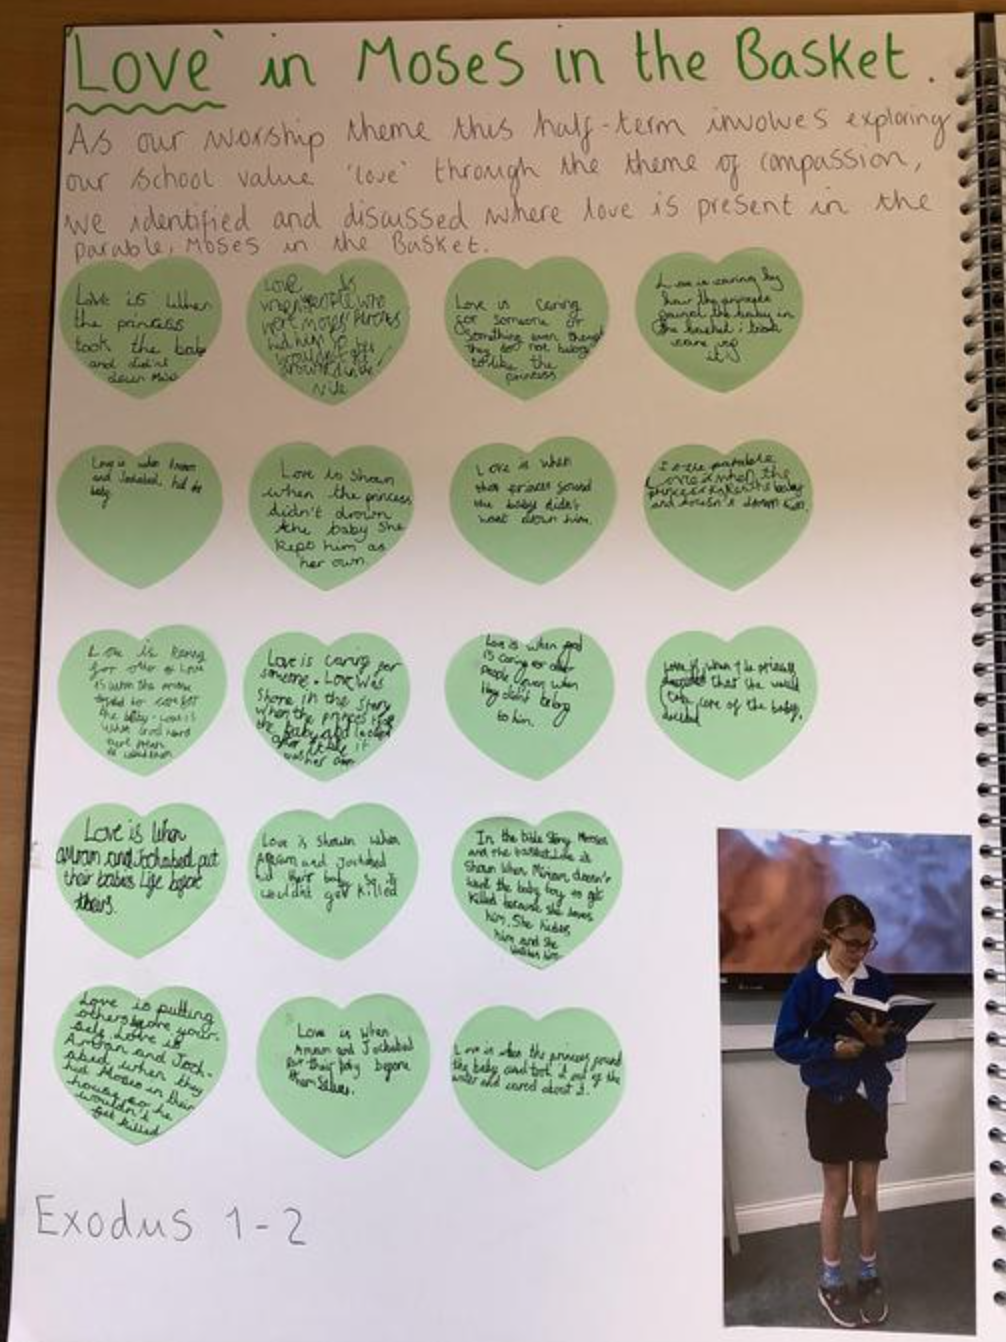 'Love' in Moses in the Basket.
As our worship theme this half-term involves exploring
our school value 'love' through the theme of compassion,
we identified and discussed where love is present in the
parable, Moses in the Basket.
Love is when
the princess
took the bab
and didn't
down
Love is
when people who
were Moses' parents
hid him so he
wouldn't get
drowned in the
Nile
Love is caring
for someone or
something even though
they do not belong
to like the
princess
Love is caring by
how the princess
found the baby in
the basket i took
care of
it
Love is when Amram
and Jochabed, hid the
baby
Love is shown
when the princess
didn't drown
the baby she
kept him as
her own.
Love is when
that princess found
the baby didn't
want drown him.
In the parable
Love is when the
princess the baby
and doesn't drown him.
Love is caring
for
is when the
tried to comfort
the baby. Love is
Love is caring for
someone. Love was
shone in the story
when the princess
the baby and looked
after it like it
was her own
Love is when god
is caring or other
people even when
they didn't belong
to him.
Love is when the princess
that she would
take care of the baby.
decided
Love is when
Amram and Jochabed put
their babies life before
theirs.
Love is shown when
Amram and Jochabed
hid their baby so it
wouldnt get killed
In the bible story Moses
and the basket Love is
shown when Miriam doesn't
want the baby boy to get
killed because she loves
him. She hides
him and she
watches him.
Love is putting
others before your-
self. Love is
Amram and Joch-
abed when they
hid Moses in their
house so he
wouldn't
get killed
Love is when
Amram and Jochabed
put their baby before
themselves.
Love is when the princess found
the baby and took it out of the
water and cared about it.
Exodus 1-2